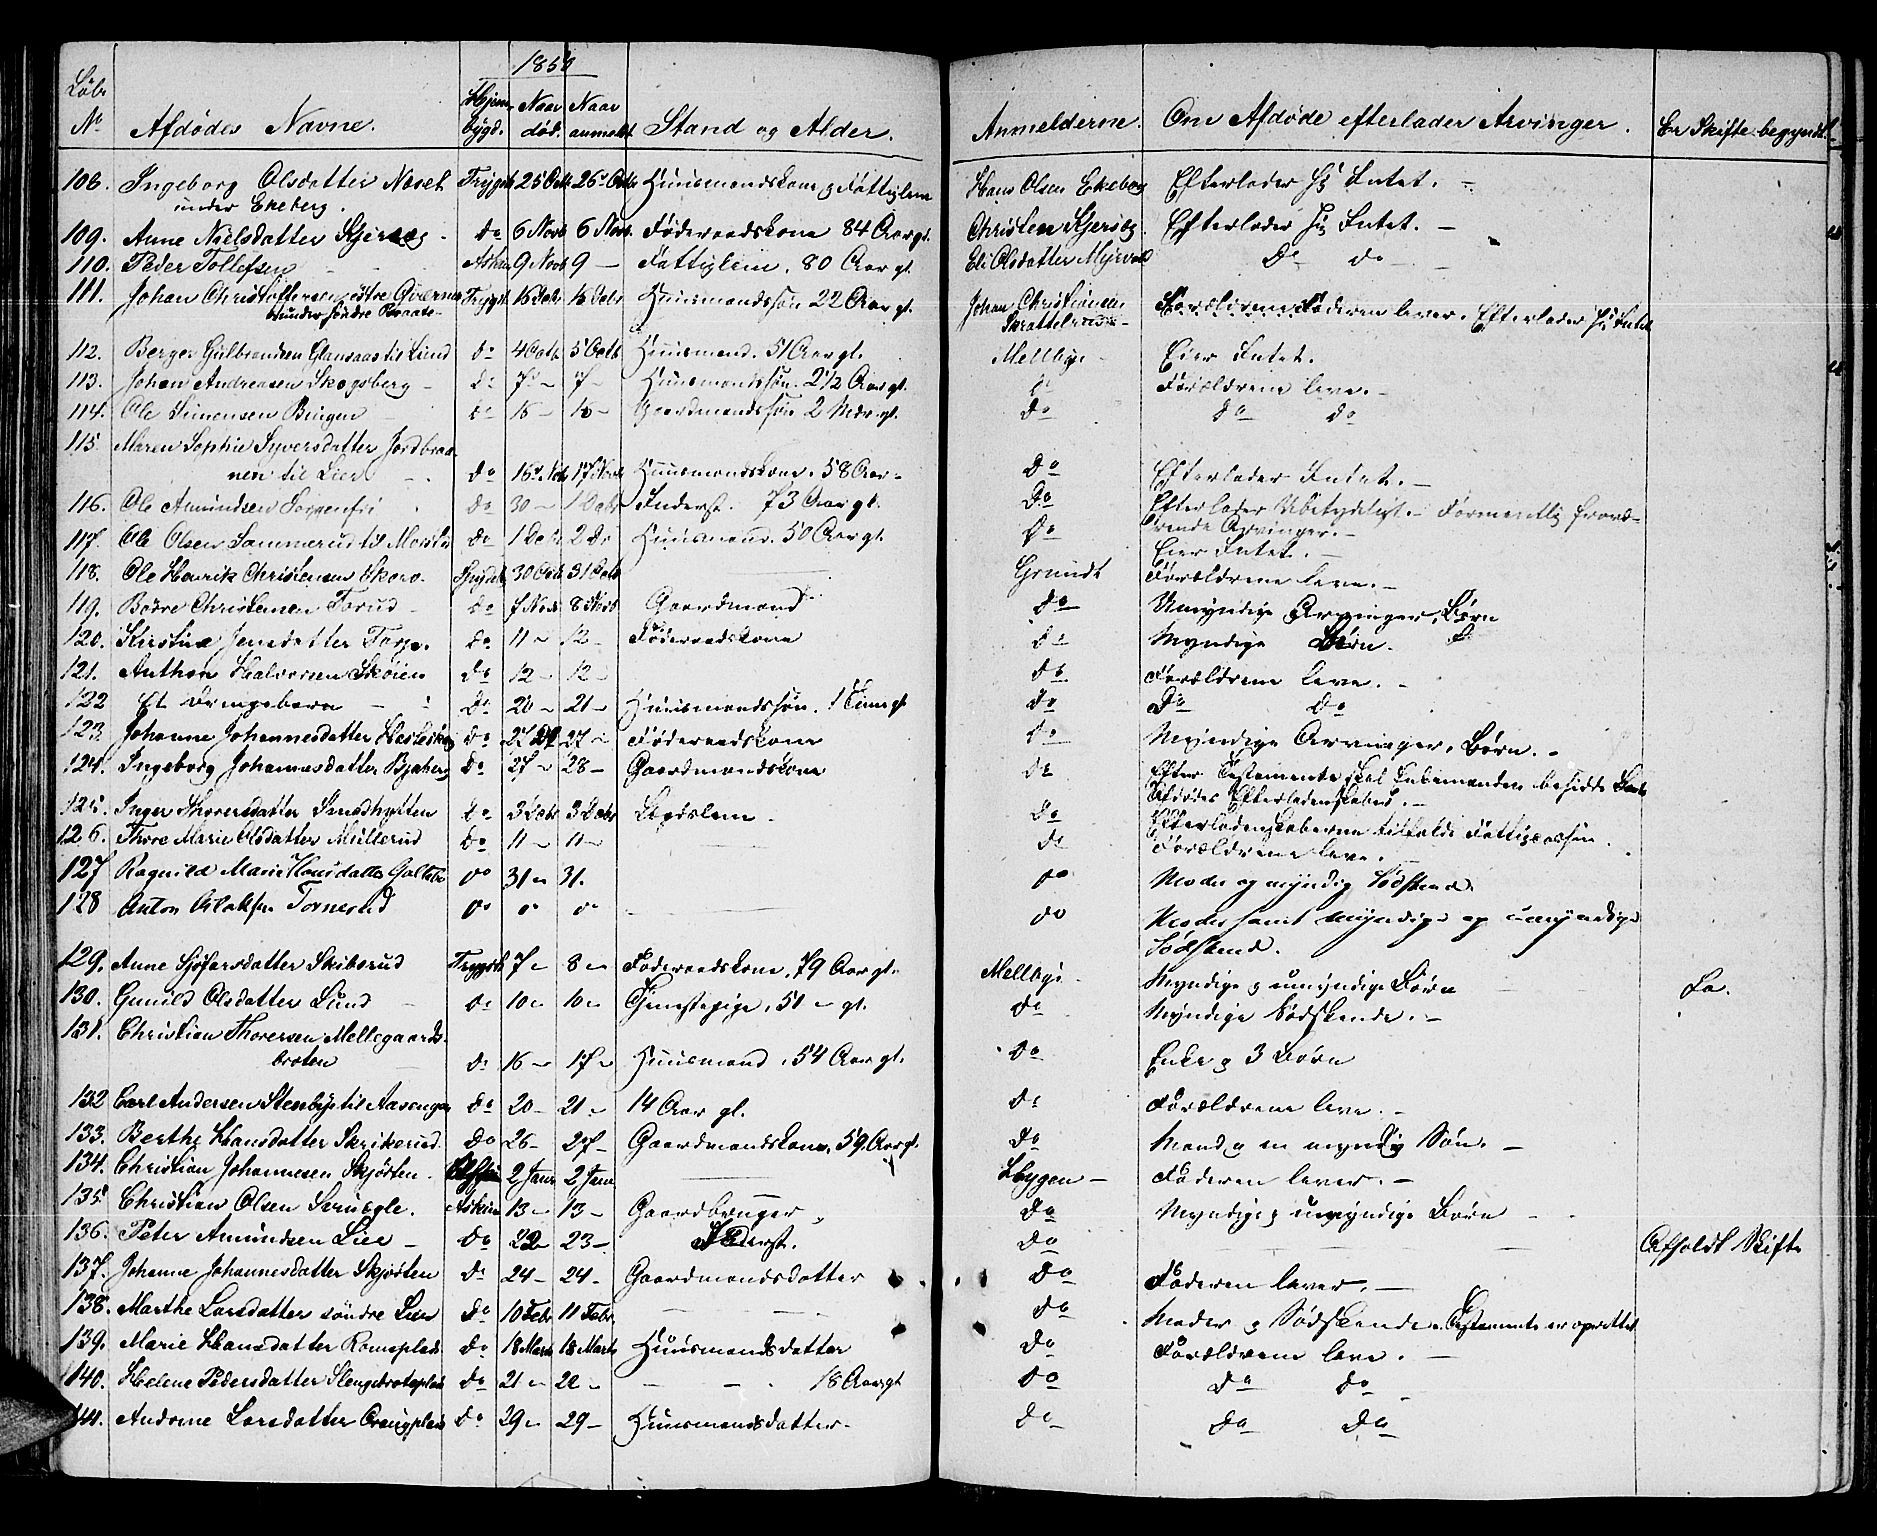 1850
Løbe No Afdødes Navne. Hjembygd. Naar død. Naar anmeldt Stand og Alder. Anmelderne. Om Afdøde efterlader Arvinger. Er Skifte begyndt.
108. Ingeborg Olsdatter Næset Trygst 25 Octb 26 Octb Huusmandskone og Fattiglem Hans Olsen Ekeberg Efterlader sig Intet. -
under Ekeberg.
109. Anne Nielsdatter Do 6 Novb 6 Novb. Føderaadskone 84 Aar gl. Christen Efterlader sig Intet. -
110. Peder Tollefsen Askim 9 Novb 9 - Fattiglem. 80 Aar gl. Eli Olsdatter Do do -
111. Johan Christoffersen østre Trygst Huusmandssøn 22 Aar gl. Johan Christiansen Forældrene Faderen lever. Efterlader sig Intet
under søndre
112. Berger Gulbrandsen til Lund do 4 Octb 5 Octb Huusmand. 51 Aar gl. Mellbye Eier Intet.
113. Johan Andreasen Skogsberg - do 7 - 7 - Huusmandssøn 2 1/2 Aar gl. do Forældrene leve. -
114. Ole Simensen Bingen do 15 - 16 - Gaardmandssøn 2 Mdr. gl. Do do do
115. Maren Sophie Syversdatter Jordbraa-
nen til Lier do 16 Novb 17 Novb Huusmandskone. 58 Aar - Do Efterlader Intet. -
116. Ole Amundsen Sorgenfri do 30 - 1 Decbr Inderst. 73 Aar gl. Do Efterlader Ubetydeligt.
Arvinger. -
117. Ole Olsen til Do 1 Decbr 2 Do Huusmand. 50 Aar gl. Do Eier Intet. -
118. Ole Henrik Christensen Skoro. 30 Octb 31 Octb Grundt Forældrene leve. -
119. Christensen Torud - do 7 Novb 8 Novb Gaardmand Do Umyndige Arvinger, Børn
120. Kirstine Jensdatter Torp. do 11 - 12 - Føderaadskone do Myndige Børn.
121. Anthon Halvorsen Skøien do 12 - 12 - do Forældrene leve. -
122 Et Drengebarn - do 20 - 21 - Huusmandssøn. 1 Time gl do Do do
123 Johanne Johannesdatter do 27 27 - Føderaadskone do Myndige Arvinger, Børn. -
124. Ingeborg Johannesdatter do 27 - 28 - Gaardmandskone do Efter Testamente skal Enkemanden besidde
Afdødes Efterladenskaber. -
125. Inger Thoresdatter Smedhytten do 3 Decbr 3 Decbr Legdslem - Do Efterladenskaberne tilfaldt Fattigcassen.
126. Thore Marie Olsdatter Müllerud Do 11 - 11 - do Forældrene leve. -
127 Ragnild Marie Hansdatter do 31 - 31. do Moder og myndig Sødskende.
128 Anton Tornerud do do do Moder samt myndige og umyndige
Sødskende.
129. Anne Skiberud Trygst 7 - 8 - Føderaadskone, 79 Aar gl. Mellbye - Myndige og umyndige Børn - Ja.
130. Gunild Olsdatter Lund do 10 - 10 - Tjenestepige, 51 - gl. Do Myndige Sødskende. -
131. Christian Thoresen Mellegaards-
braten do 16 - 17 - Huusmand, 54 Aar gl. Do Enke og 3 Børn
132 Carl Andersen Stenbye til Aasenger do 20 - 21 - 14 Aar gl. do Forældrene leve. -
133. Berthe Hansdatter Skrikerud. Do 26 - 27 - Gaardmandskone, 59 Aar gl. Do Mand og en myndig Søn. -
134. Christian Johannesen Skjøsten. 2 Janr 2 Janr Hygen - Faderen lever. -
135. Christian Olsen Askim 13 - 13 - Gaardbruger, Do Myndige og umyndige Børn -
136. Peter Amundsen Lie - Do 22 23 - Inderst. Do Afholdt Skifte
137. Johanne Johannesdatter Skjøsten Do 24 - 24 - Gaardmandsdatter Do Faderen lever. -
138. Marthe Larsdatter søndre Do 10 Febr 11 Febr. Do Moder og Sødskende. Testamente er oprettet
139. Marie Hansdatter Do 18 Marts 18 Marts Huusmandsdatter Do Forældrene leve. -
140. Helene Pedersdatter Do 21 - 22 - - - 18 Aar gl Do Do do
141. Andrine Larsdatter Do 29 - 29 - Huusmandsdatter - Do Do Do